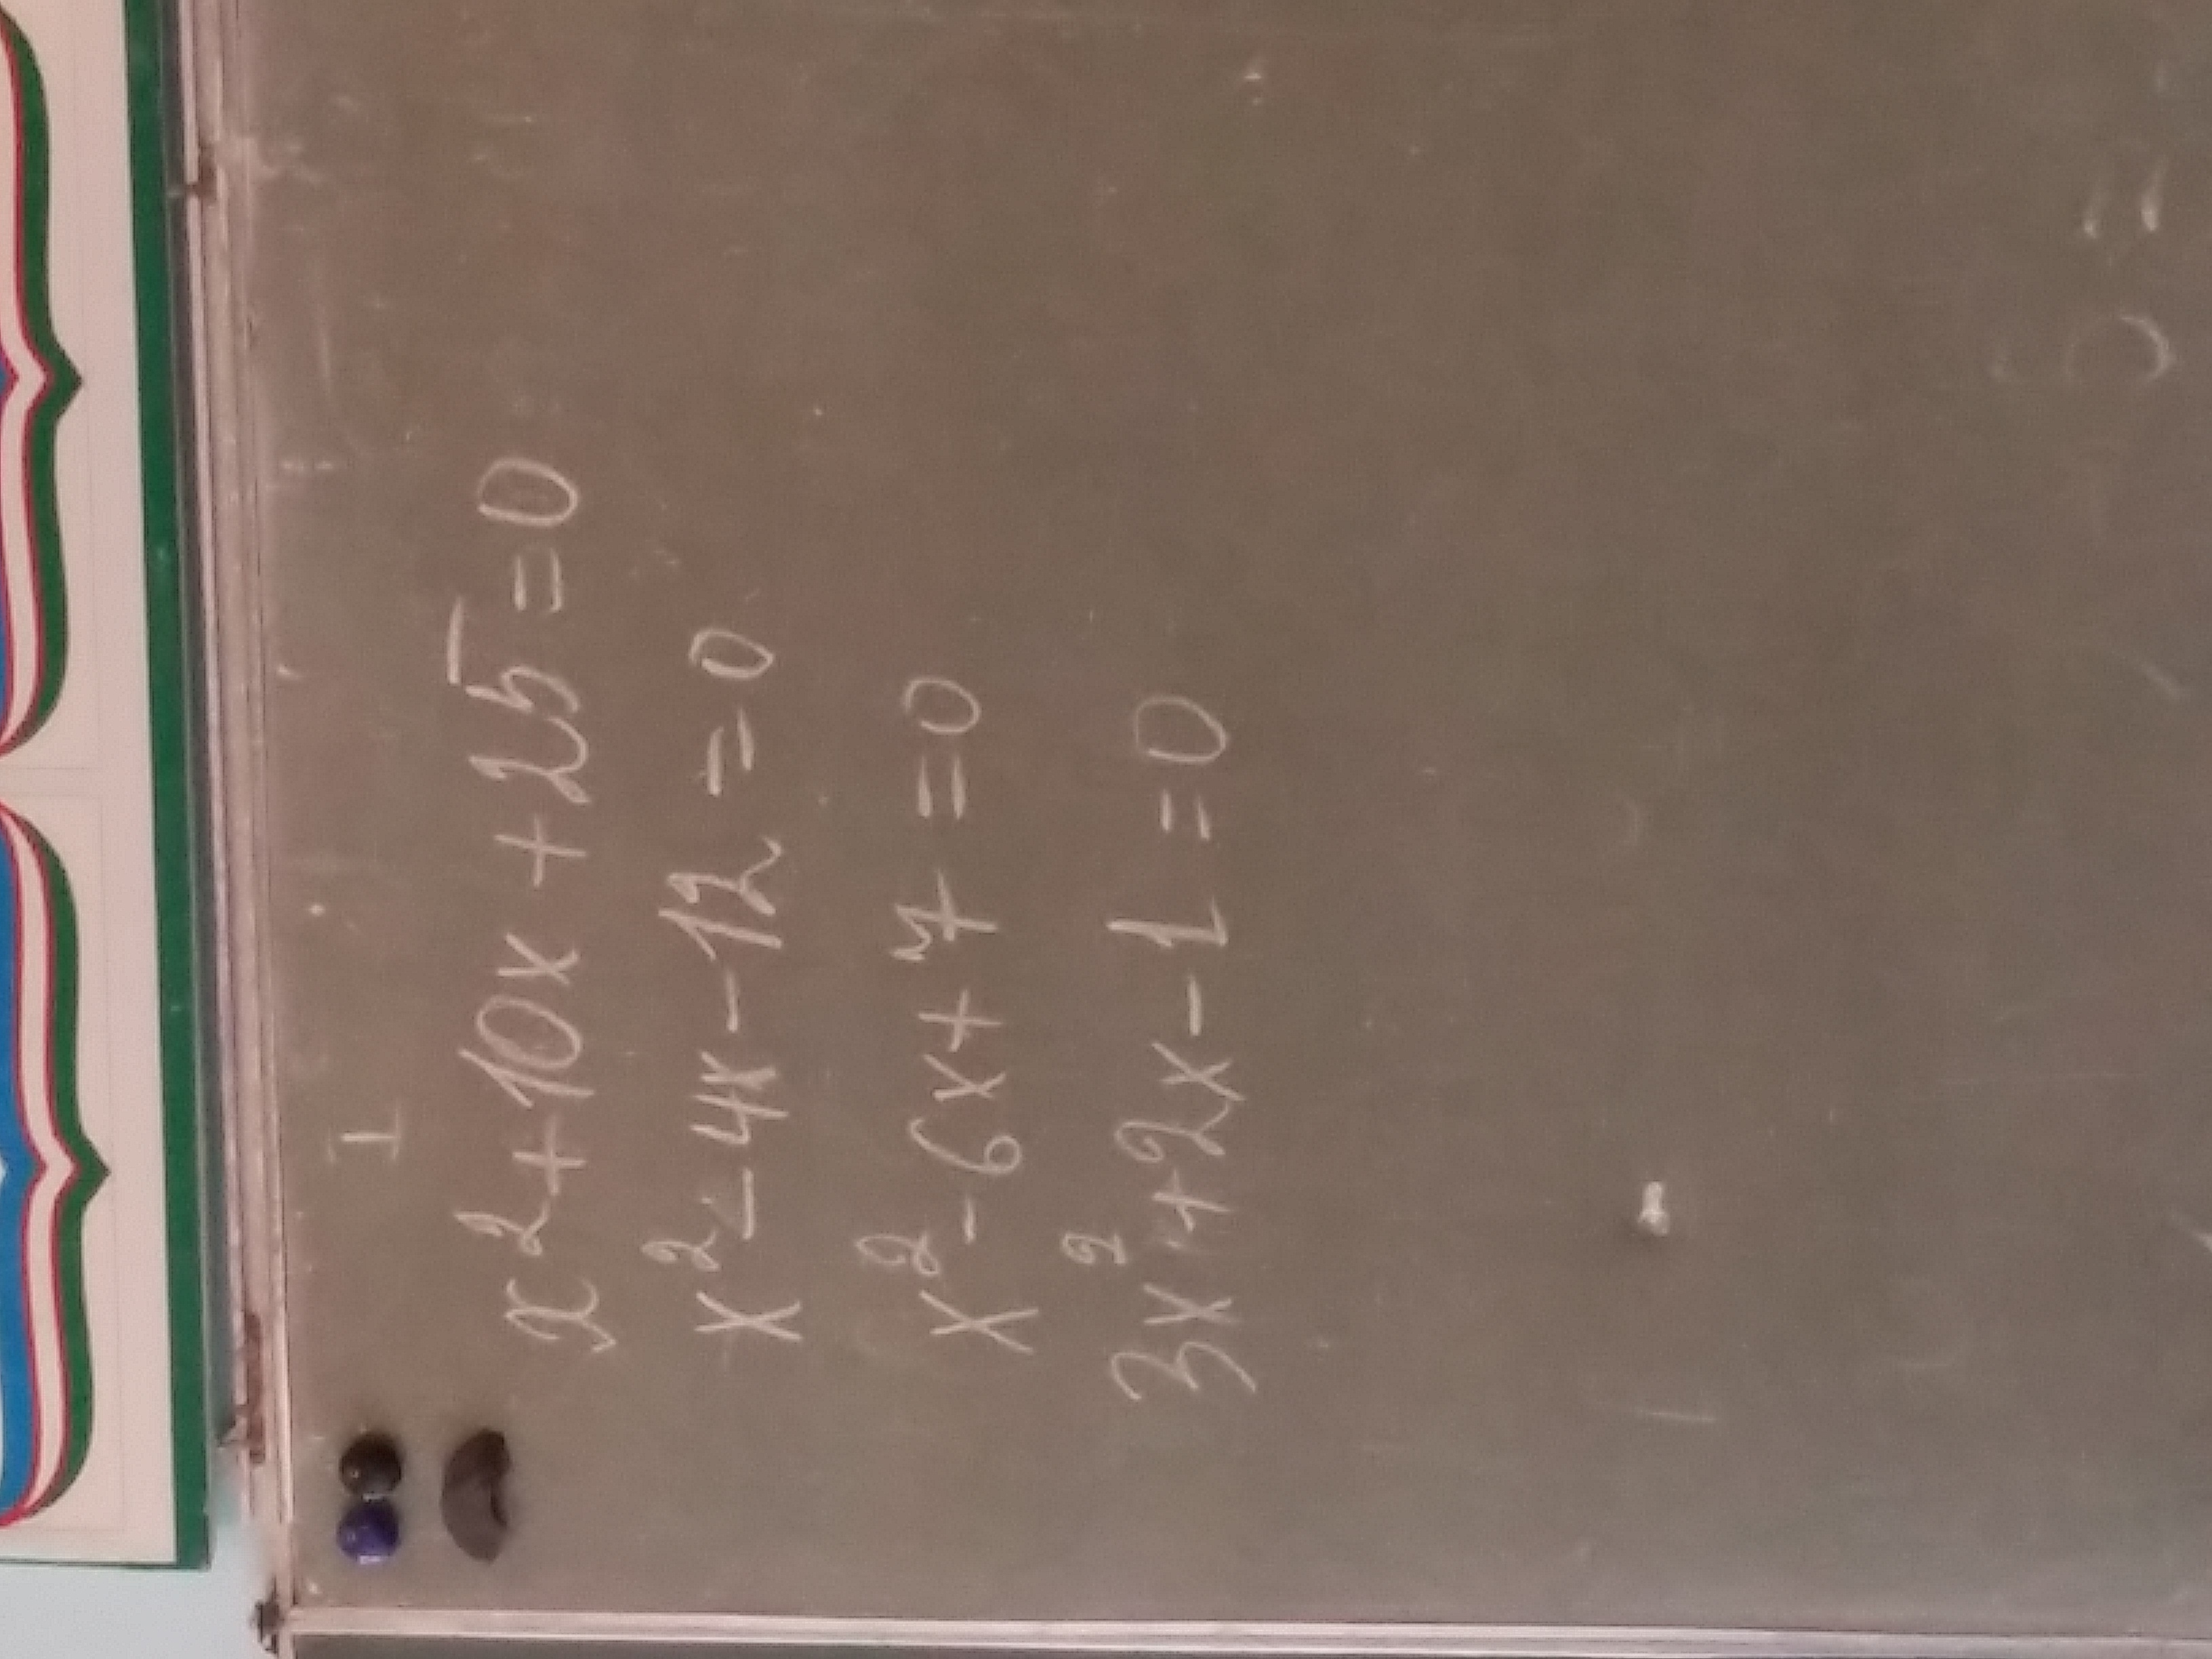 I
x²+10x+25=0
x²-4x-12=0
x²-6x+7=0
3x²+2x-1=0